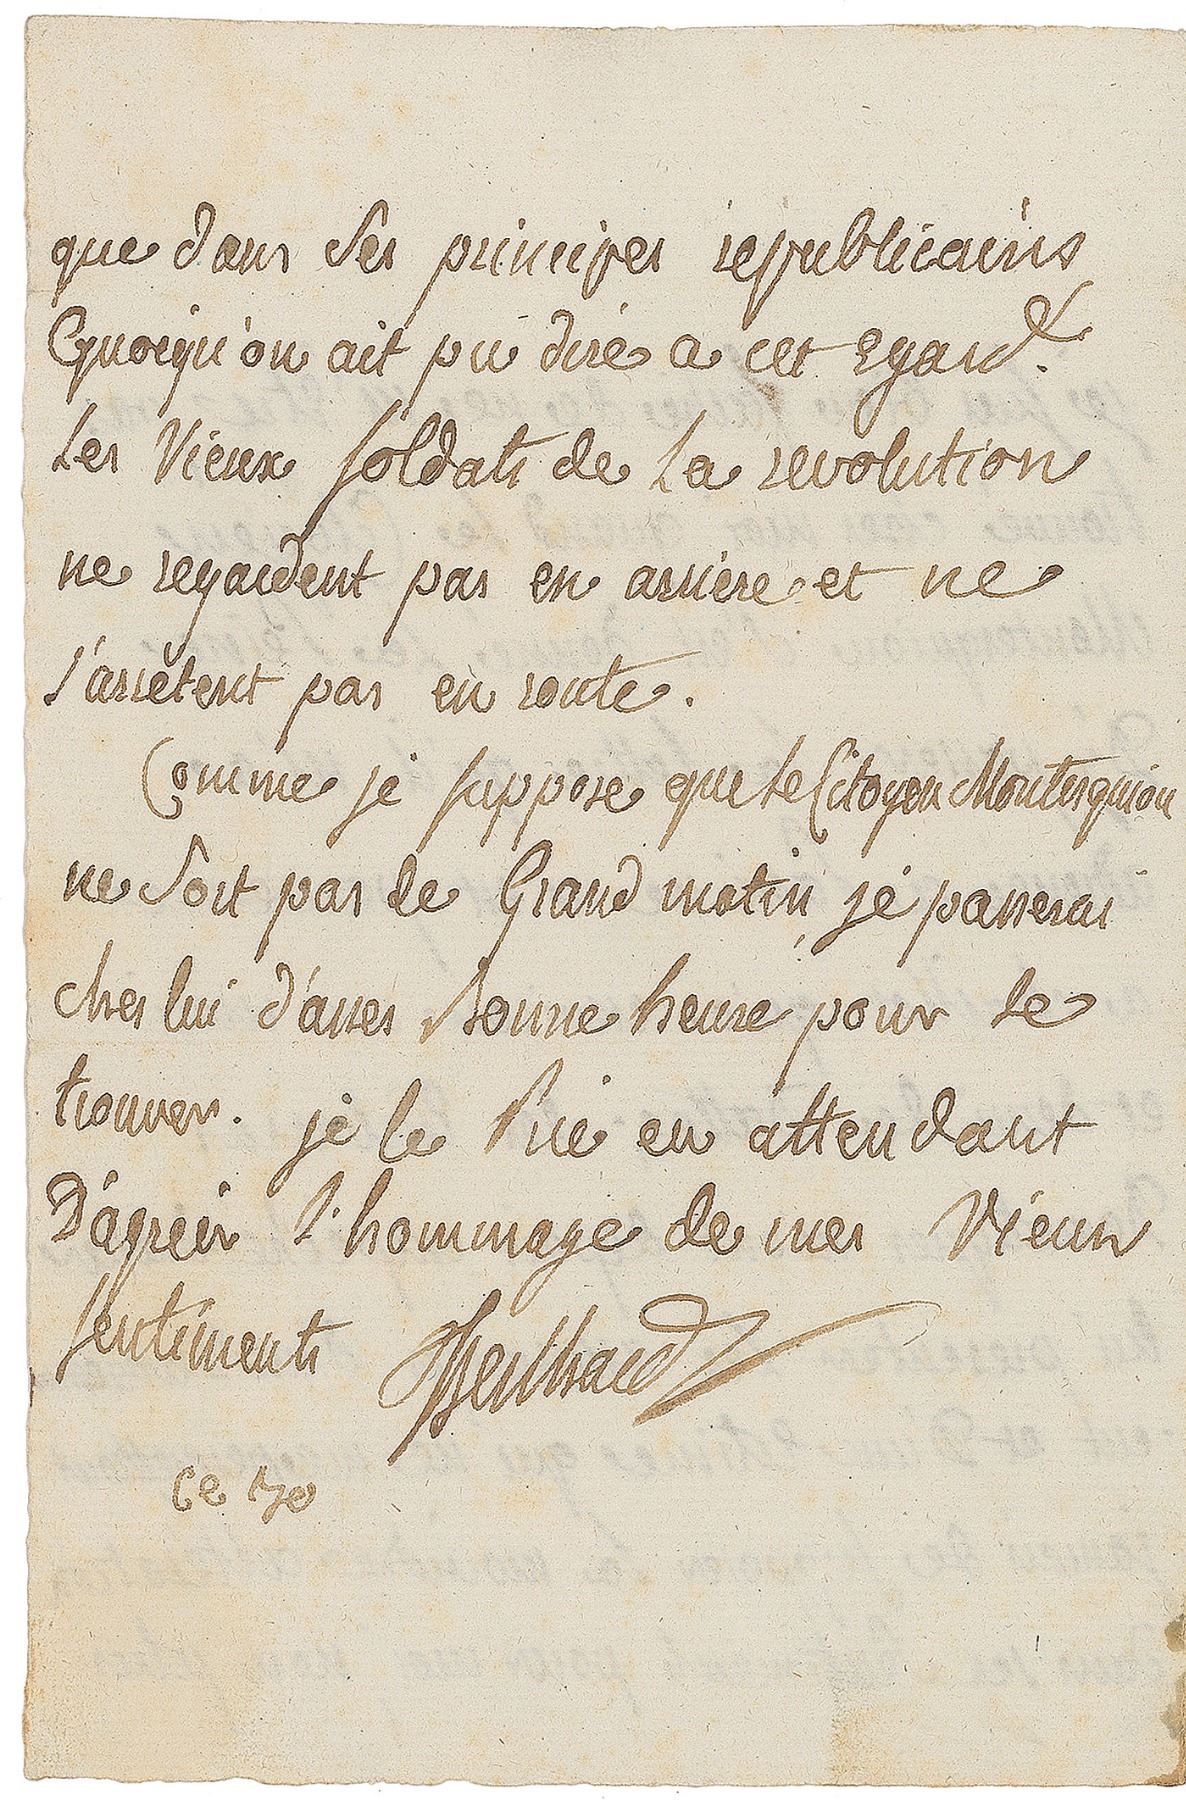 que dans ses principes republicains
Quoiqu'on ait pu dire a cet Egard.
Les Vieux soldats de La revolution
ne regardent pas en arriere et ne
s'arrêtent pas en route.
Comme je suppose que Le Citoyen Montesquiou
ne sort pas de Grand matin, je passerai
ches lui d'asses Bonne heure pour Le
trouver. je le Prie en attendant
D'agréér l'hommage de mes Vieux
sentiments
ce 30